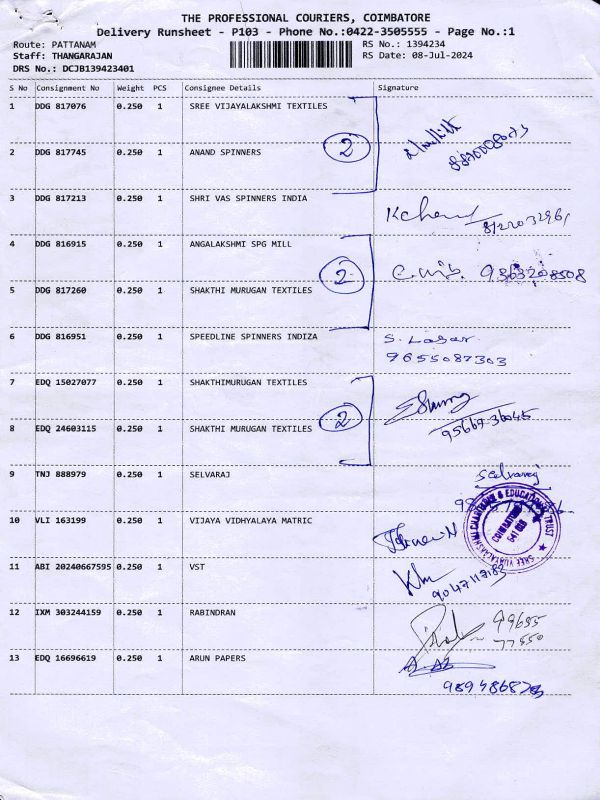 THE PROFESSIONAL COURIERS, COIMBATORE
Delivery Runsheet - P103 - Phone No.:0422-3505555 - Page No.:1
Route: PATTANAM
RS No.: 1394234
Staff: THANGARAJAN
RS Date: 08-Jul-2024
DRS No.: DCJB139423401
S No Consignment No Weight PCS Consignee Details Signature
1 DDG 817076 0.250 1 SREE VIJAYALAKSHMI TEXTILES
2
2 DDG 817745 0.250 1 ANAND SPINNERS
3 DDG 817213 0.250 1 SHRI VAS SPINNERS INDIA
4 DDG 816915 0.250 1 ANGALAKSHMI SPG MILL
2 9363208508
5 DDG 817260 0.250 1 SHAKTHI MURUGAN TEXTILES
6 DDG 816951 0.250 1 SPEEDLINE SPINNERS INDIZA
9655087303
7 EDQ 15027077 0.250 1 SHAKTHIMURUGAN TEXTILES
2
8 EDQ 24603115 0.250 1 SHAKTHI MURUGAN TEXTILES
9 TNJ 888979 0.250 1 SELVARAJ Selvaraj
10 VLI 163199 0.250 1 VIJAYA VIDHYALAYA MATRIC
SREE VIJAYALAKSHMI CHARITABLE & EDUCATIONAL TRUST
COIMBATORE
11 ABI 20240667595 0.250 1 VST
9047117183
12 IXM 303244159 0.250 1 RABINDRAN 99655
77550
13 EDQ 16696619 0.250 1 ARUN PAPERS